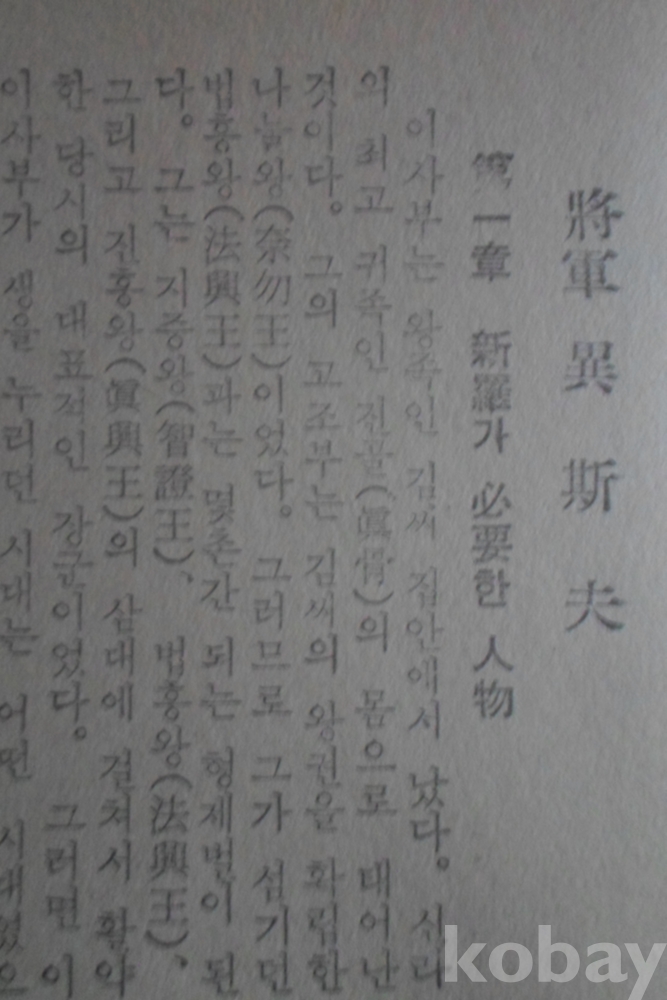 將軍 異斯夫
第一章 新羅가 必要한 人物
이사부는 왕족인 김씨 집안에서 났다. 신라
의 최고 귀족인 진골(眞骨)의 몸으로 태어난
것이다. 그의 고조부는 김씨의 왕권을 확립한
나물왕(奈勿王)이었다. 그러므로 그가 섬기던
법흥왕(法興王)과는 몇촌간 되는 형제벌이 된
다. 그는 지증왕(智證王), 법흥왕(法興王),
그리고 진흥왕(眞興王)의 삼대에 걸쳐서 활약
한 당시의 대표적인 장군이었다. 그러면 이
이사부가 생을 누리던 시대는 어떤 시대였으
kobay